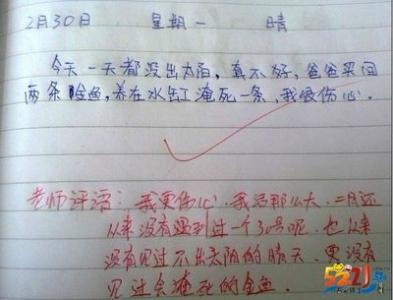 2月30日 星期一 晴
今天一天都没出太阳，真不好，爸爸买回
两条金鱼，养在水缸淹死一条，我很伤心。
老师评语：我更伤心，我活那么大，二月还
从来没有遇到过一个30号呢，也从来
没有见过不出太阳的晴天，更没有
见过会淹死的金鱼
5721